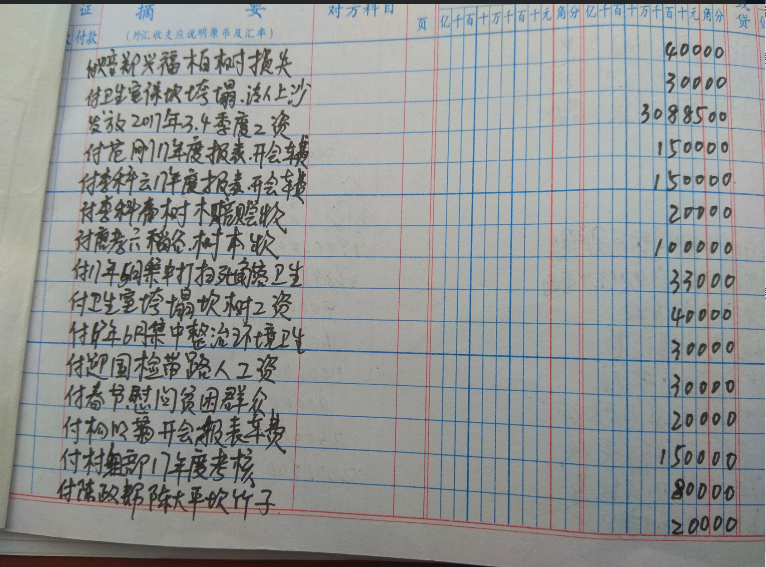 证 摘 要 对方科目 页 亿千百十万千百十元角分 亿千百十万千百十元角分 贷
付款 (外汇收支应说明原币及汇率)
付赔郑兴福柏树损失 40000
付卫生室保坎垮塌.请人上沙 30000
发放2017年3.4季度工资 3088500
付范 17年度报表.开会车费 150000
付李科云17年度报表.开会车费 150000
付李科 树木赔赏款 20000
付 六稻谷.树木款 100000
付17年 月集中打扫死角落卫生 33000
付卫生室垮塌坎树工资 40000
付 年6月集中整治环境卫生 30000
付迎国检带路人工资 30000
付春节慰问贫困群众 20000
付 开会报表车费 150000
付村 部17年度考核 80000
付陈政 陈大平坎竹子 20000